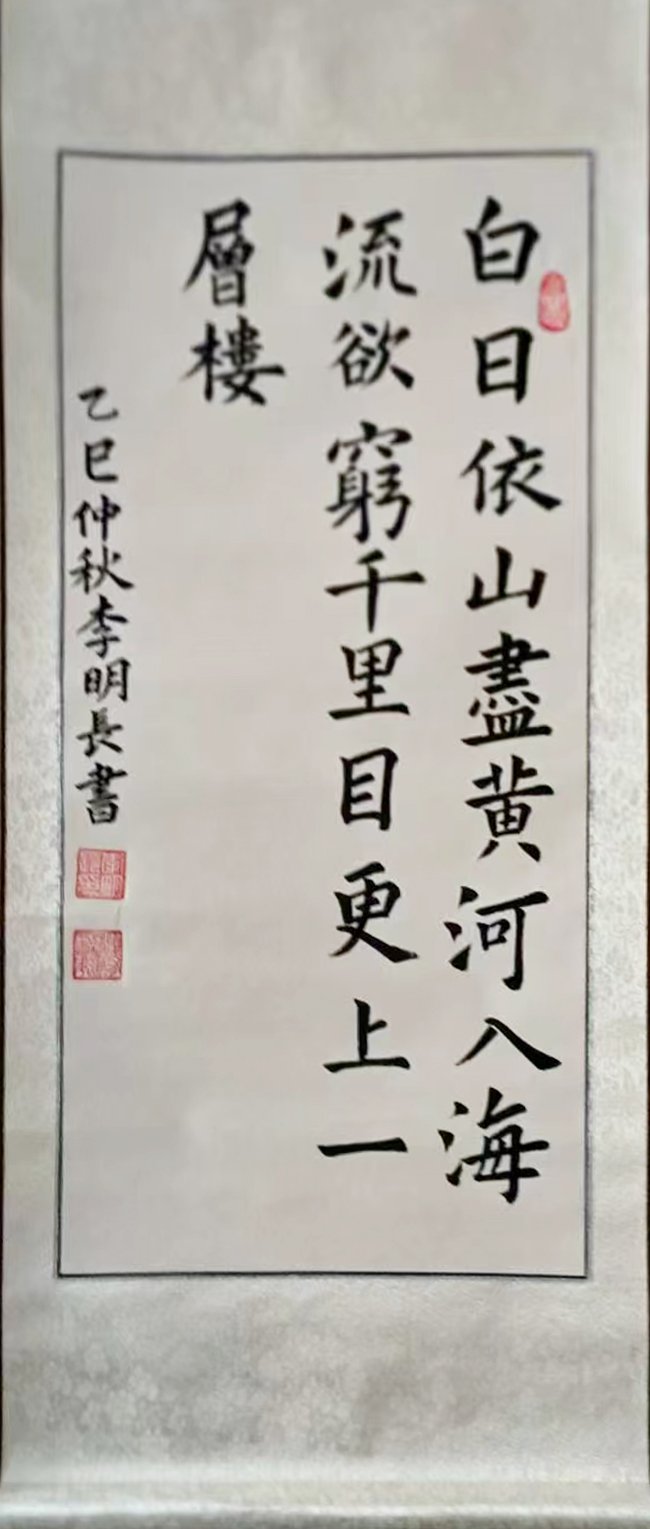 白日依山盡黄河入海
流欲窮千里目更上一
層樓
乙巳仲秋李明長書